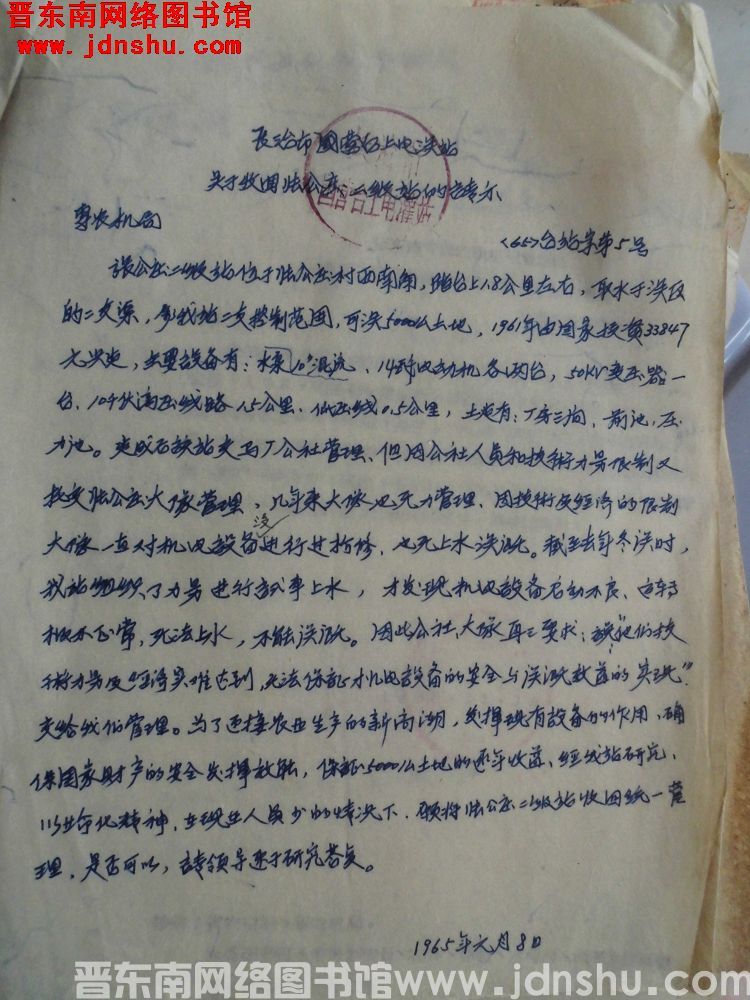 晋东南网络图书馆
www.jdnshu.com
长治市国营台上电灌站
关于收回张公庄二级站的请示
专农机局
<65>台站字第5号
张公庄二级站位于张公庄村西南角，距台上1.8公里左右，取水于灌区
的二支渠，属我站二支控制范围，可浇5000亩土地，1961年由国家投资33847
元兴建，主要设备有：水泵10"混流、14瓩电动机各两台，50KV变压器一
台、10千伏高压线路1.5公里、低压线0.5公里，土建有：厂房三间，前池，压
力池。建成后该站交马厂公社管理、但因公社人员和技术力量限制又
转交张公庄大队管理，几年来大队也无力管理、因技术及经济的限制
大队一直对机电设备没进行过检修，也无上水浇地。截至去年冬浇时，
我站组织了力量进行试车上水，才发现机电设备启动不良、运转
极不正常，无法上水，不能浇地。因此公社、大队再三要求：该"他们技
术力量及经济实难达到，无法保证机电设备的安全与灌溉效益的实现"
交给我们管理。为了迎接农业生产的新高潮，发挥现有设备的作用、确
保国家财产的安全发挥效能，保证5000亩土地的逐年收益、经我站研究、
以革命化精神，在现在人员少的情况下，愿将张公庄二级站收回统一管
理，是否可以，请领导速于研究答复。
1965年元月8日
国营台上电灌站
晋东南网络图书馆www.jdnshu.com